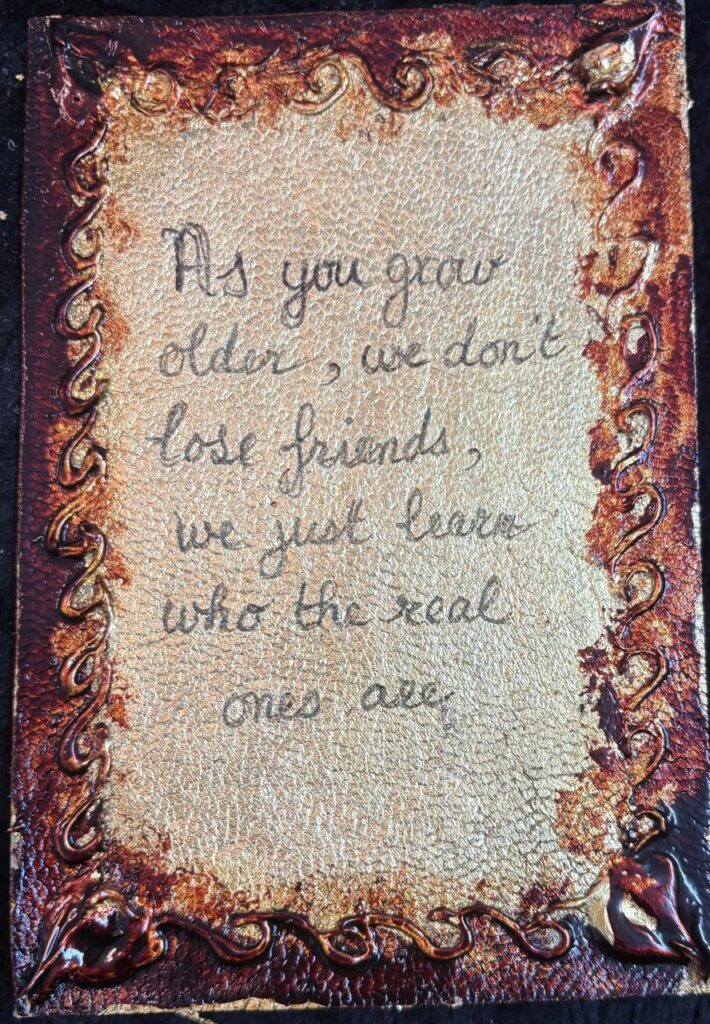 As you grow
older, we don't
lose friends,
we just learn
who the real
ones are